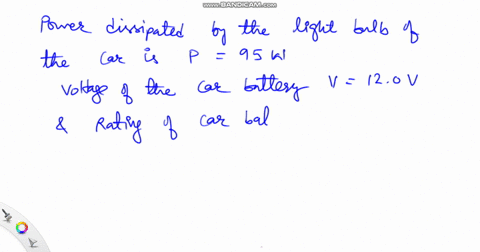 WWW.BANDICAM.COM
Power dissipated by the light bulb of
the car is P = 95 W
Voltage of the car battery V = 12.0 V
& Rating of car bal